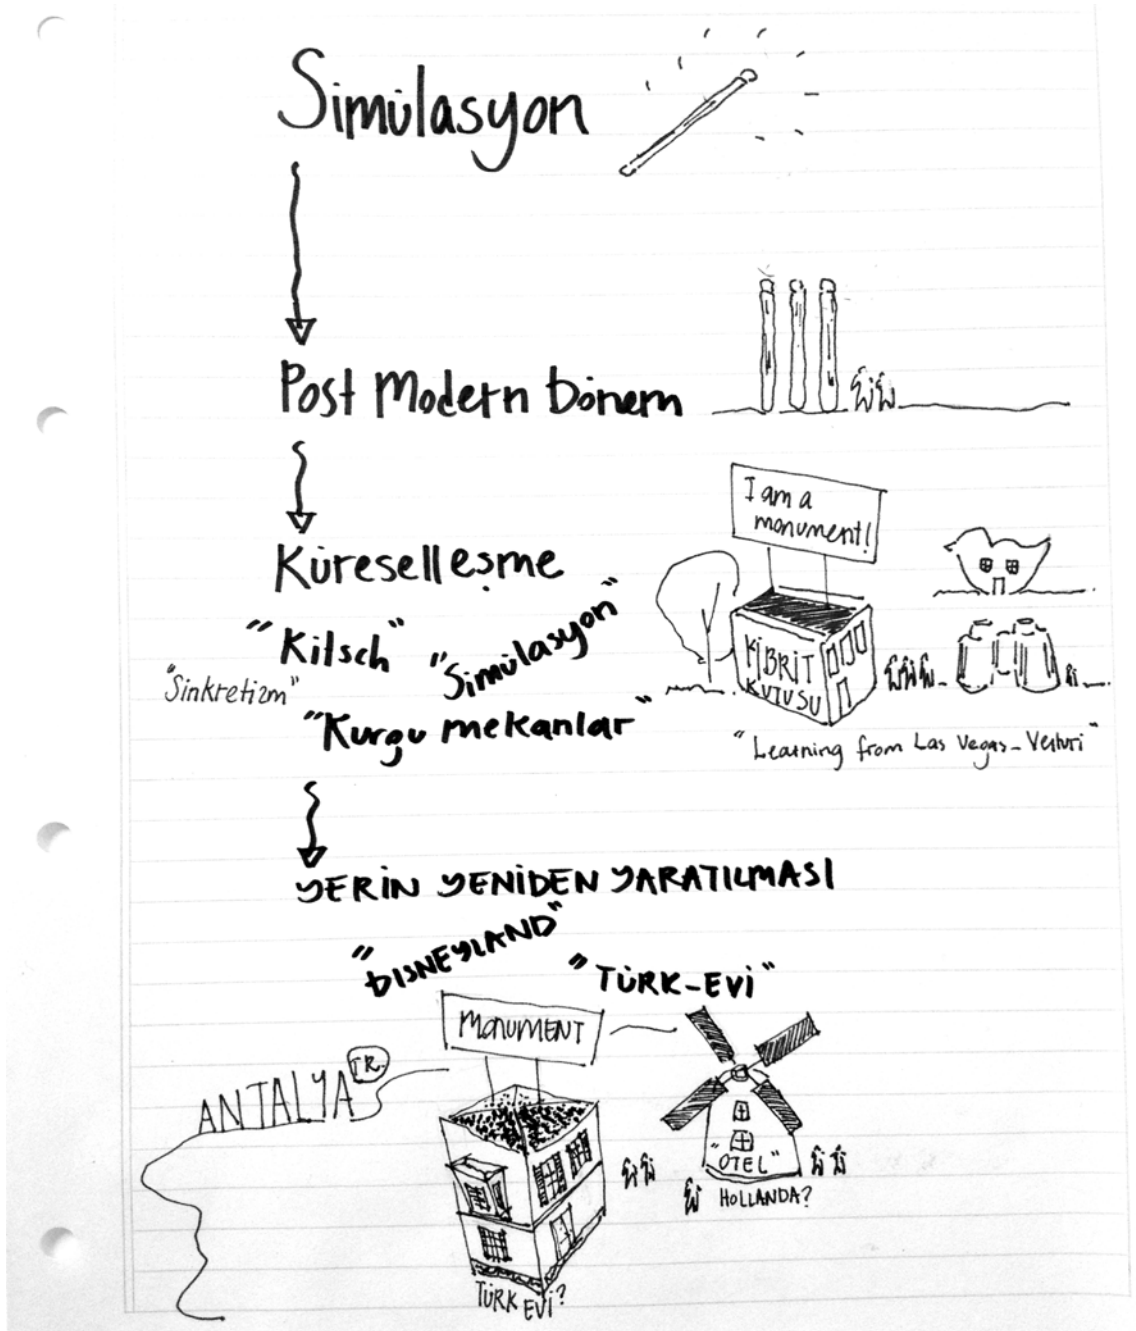 Simülasyon
Post Modern Dönem
I am a
monument!
Küreselleşme
"Kitsch"
"Simülasyon"
"Sinkretizm"
KİBRİT
KUTUSU
"Kurgu mekanlar"
"Learning from Las Vegas - Venturi"
YERİN YENİDEN YARATILMASI
"DISNEYLAND"
"TÜRK-EVİ"
MONUMENT
ANTALYA TR.
"OTEL"
HOLLANDA?
TÜRK EVİ?